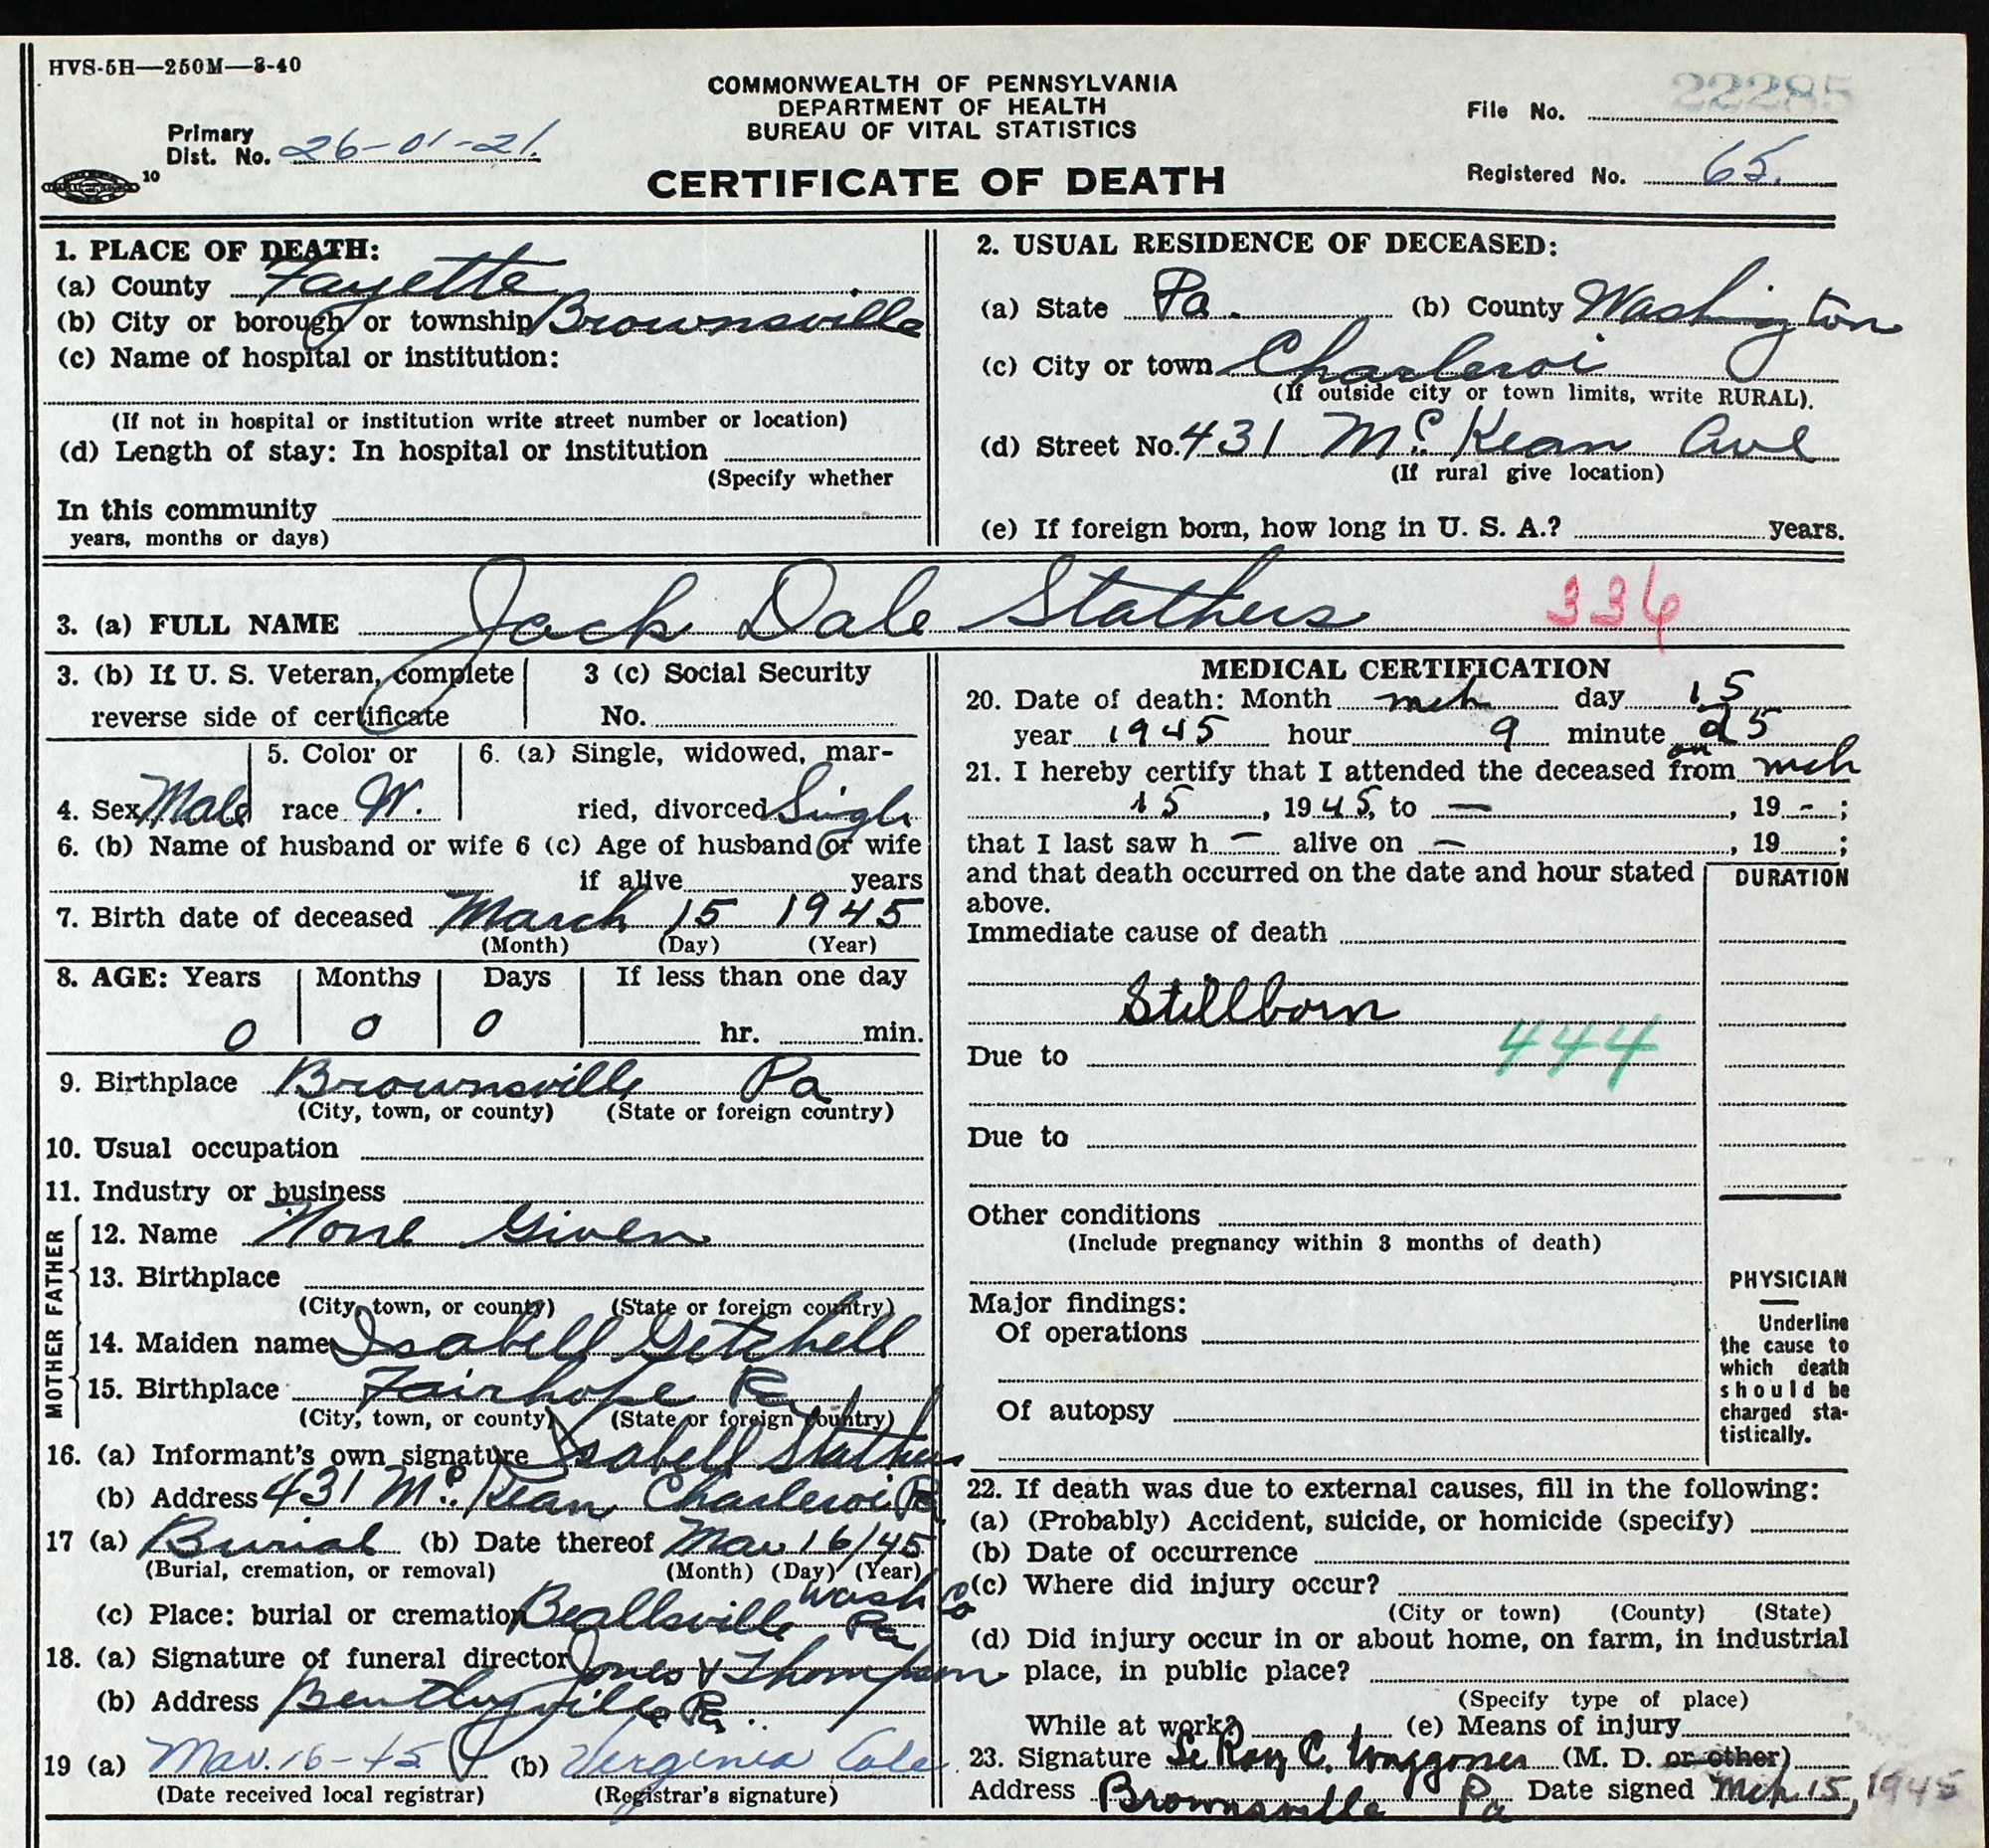 HVS-5H—250M—8-40
COMMONWEALTH OF PENNSYLVANIA
DEPARTMENT OF HEALTH
BUREAU OF VITAL STATISTICS
CERTIFICATE OF DEATH
Primary
Dist. No. 26-01-21.
10
22285
File No.
Registered No. 65.
1. PLACE OF DEATH:
(a) County Fayette
(b) City or borough or township Brownsville
(c) Name of hospital or institution:
(If not in hospital or institution write street number or location)
(d) Length of stay: In hospital or institution
(Specify whether
In this community
years, months or days)
2. USUAL RESIDENCE OF DECEASED:
(a) State Pa. (b) County Washington
(c) City or town Charleroi
(If outside city or town limits, write RURAL).
(d) Street No. 431 McKean Ave
(If rural give location)
(e) If foreign born, how long in U. S. A.? years.
3. (a) FULL NAME Jack Dale Stathers 336
3. (b) If U. S. Veteran, complete
reverse side of certificate
3 (c) Social Security
No.
4. Sex Male
5. Color or
race W.
6. (a) Single, widowed, mar-
ried, divorced Single
6. (b) Name of husband or wife 6 (c) Age of husband or wife
if alive years
7. Birth date of deceased March 15 1945
(Month) (Day) (Year)
8. AGE: Years Months Days If less than one day
0 0 0 hr. min.
9. Birthplace Brownsville Pa
(City, town, or county) (State or foreign country)
10. Usual occupation
11. Industry or business
MOTHER FATHER
12. Name None Given
13. Birthplace
(City, town, or county) (State or foreign country)
14. Maiden name Isabell Getchell
15. Birthplace Fairhope Pa
(City, town, or county) (State or foreign country)
16. (a) Informant's own signature Isabell Stathers
(b) Address 431 Mc. Kean Charleroi Pa
17 (a) Burial (b) Date thereof Mar 16/45
(Burial, cremation, or removal) (Month) (Day) (Year)
(c) Place: burial or cremation Beallsville Wash Co Pa
18. (a) Signature of funeral director Jones & Thompson
(b) Address Bentleyville Pa.
19 (a) Mar. 16-45 (b) Verginia Cole
(Date received local registrar) (Registrar's signature)
MEDICAL CERTIFICATION
20. Date of death: Month mch day 15
year 1945 hour 9 minute 25
21. I hereby certify that I attended the deceased from on mch
15, 1945, to —, 19 -;
that I last saw h — alive on —, 19 ;
and that death occurred on the date and hour stated
above.
DURATION
Immediate cause of death
Stillborn
444
Due to
Due to
Other conditions
(Include pregnancy within 3 months of death)
Major findings:
Of operations
Of autopsy
PHYSICIAN
—
Underline
the cause to
which death
should be
charged sta-
tistically.
22. If death was due to external causes, fill in the following:
(a) (Probably) Accident, suicide, or homicide (specify)
(b) Date of occurrence
(c) Where did injury occur?
(City or town) (County) (State)
(d) Did injury occur in or about home, on farm, in industrial
place, in public place?
(Specify type of place)
While at work? (e) Means of injury
23. Signature Le Roy C. Waggoner (M. D. or other)
Address Brownsville Pa Date signed Mch 15, 1945